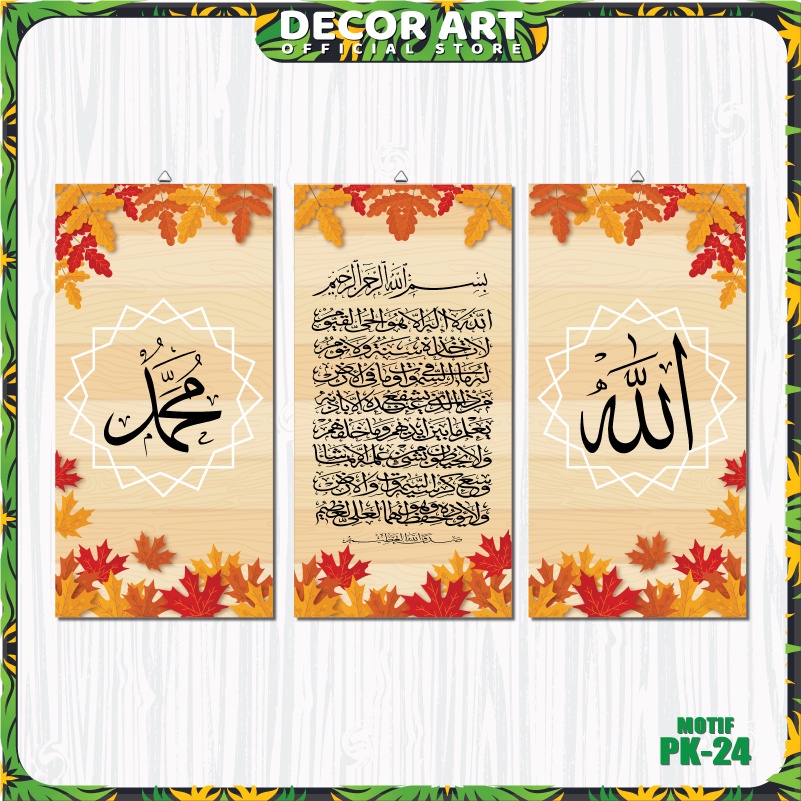 DECOR ART
OFFICIAL STORE
محمد
بسم الله الرحمن الرحيم
الله لا إله إلا هو الحي القيوم
لا تأخذه سنة ولا نوم
له ما في السموات وما في الأرض
من ذا الذي يشفع عنده إلا بإذنه
يعلم ما بين أيديهم وما خلفهم
ولا يحيطون بشيء من علمه إلا بما شاء
وسع كرسيه السموات والأرض
ولا يؤده حفظهما وهو العلي العظيم
صدق الله العظيم
الله
MOTIF
PK-24